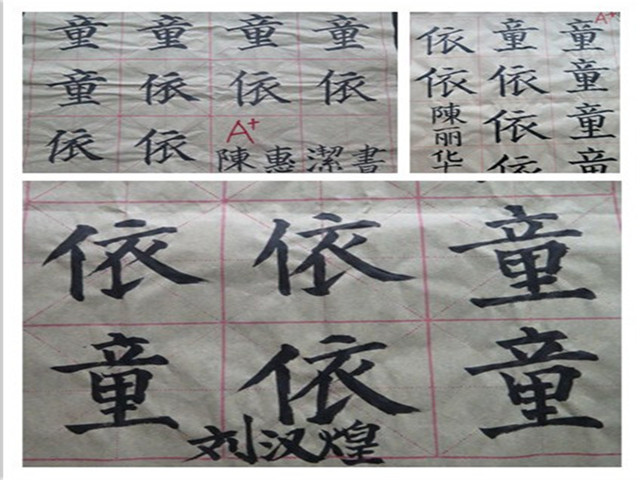 童童童童
童依依依
依依
A+
陳惠潔書
A+
童童童童
童依依依
依依陳丽华
依依童
童依童
刘汉煌